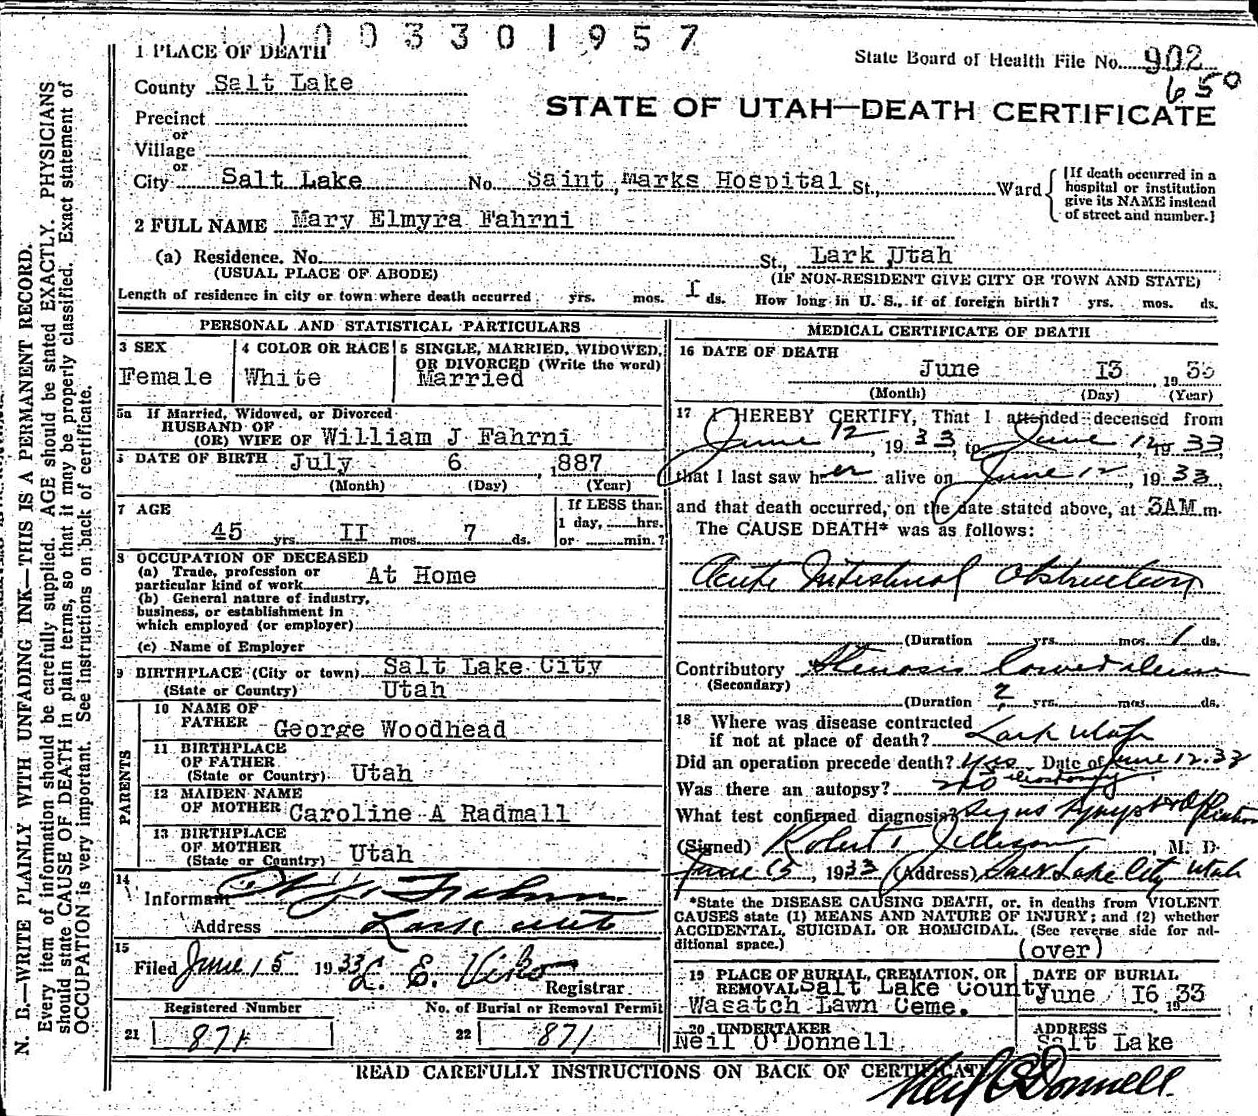 1003301957
1 PLACE OF DEATH
State Board of Health File No. 902
650
County Salt Lake
STATE OF UTAH—DEATH CERTIFICATE
Precinct
or
Village
or
City Salt Lake No. Saint Marks Hospital St., Ward
[If death occurred in a
hospital or institution
give its NAME instead
of street and number.]
2 FULL NAME Mary Elmyra Fahrni
(a) Residence. No. St., Lark Utah
(USUAL PLACE OF ABODE) (IF NON-RESIDENT GIVE CITY OR TOWN AND STATE)
Length of residence in city or town where death occurred yrs. mos. I ds. How long in U. S., if of foreign birth? yrs. mos. ds.
PERSONAL AND STATISTICAL PARTICULARS
3 SEX
Female
4 COLOR OR RACE
White
5 SINGLE, MARRIED, WIDOWED,
OR DIVORCED (Write the word)
Married
5a If Married, Widowed, or Divorced
HUSBAND OF
(OR) WIFE OF William J Fahrni
DATE OF BIRTH July 6 1887
(Month) (Day) (Year)
7 AGE
45 yrs. II mos. 7 ds.
If LESS than
1 day, hrs.
or min.?
8 OCCUPATION OF DECEASED
(a) Trade, profession or
particular kind of work At Home
(b) General nature of industry,
business, or establishment in
which employed (or employer)
(c) Name of Employer
9 BIRTHPLACE (City or town) Salt Lake City
(State or Country) Utah
PARENTS
10 NAME OF
FATHER George Woodhead
11 BIRTHPLACE
OF FATHER
(State or Country) Utah
12 MAIDEN NAME
OF MOTHER Caroline A Radmall
13 BIRTHPLACE
OF MOTHER
(State or Country) Utah
14
Informant
Address Lark
15
Filed June 15 1933 L. E. Viko
Registrar
Registered Number No. of Burial or Removal Permit
21 871 22 871
MEDICAL CERTIFICATE OF DEATH
16 DATE OF DEATH
June 13, 1933
(Month) (Day) (Year)
17 I HEREBY CERTIFY, That I attended deceased from
June 12, 1933, to June 12, 1933,
that I last saw her alive on June 12, 1933,
and that death occurred, on the date stated above, at 3AM m.
The CAUSE DEATH* was as follows:
Acute Intestinal Obstruction
(Duration yrs. mos. 1 ds.
Contributory Stenosis Lower Ileum
(Secondary)
(Duration ? yrs. mos. ds.
18 Where was disease contracted
if not at place of death? Lark Utah
Did an operation precede death? yes Date of June 12. 33
ileostomy
Was there an autopsy? no
What test confirmed diagnosis? Signs Symptoms & Operation
(Signed) Robert T. M. D.
June 15, 1933 (Address) Salt Lake City Utah
*State the DISEASE CAUSING DEATH, or, in deaths from VIOLENT
CAUSES state (1) MEANS AND NATURE OF INJURY; and (2) whether
ACCIDENTAL, SUICIDAL OR HOMICIDAL. (See reverse side for ad-
ditional space.)
(over)
19 PLACE OF BURIAL, CREMATION, OR
REMOVAL Salt Lake County
Wasatch Lawn Ceme.
DATE OF BURIAL
June 16 1933
20 UNDERTAKER
Neil O'Donnell
ADDRESS
Salt Lake
READ CAREFULLY INSTRUCTIONS ON BACK OF CERTIFICATE
Neil O'Donnell
N. B.—WRITE PLAINLY WITH UNFADING INK—THIS IS A PERMANENT RECORD.
Every item of information should be carefully supplied. AGE should be stated EXACTLY. PHYSICIANS
should state CAUSE OF DEATH in plain terms, so that it may be properly classified. Exact statement of
OCCUPATION is very important. See instructions on back of certificate.